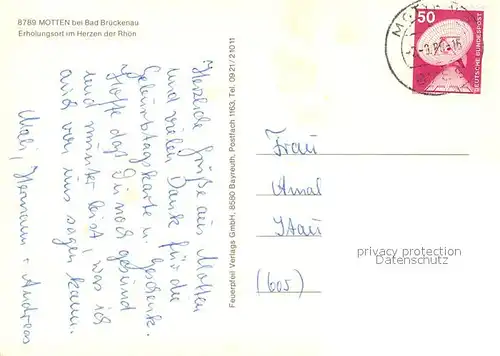 8789 MOTTEN bei Bad Brückenau
Erholungsort im Herzen der Rhön
Herzliche Grüße aus Motten
und vielen Dank für die
Geburtstagskarte u. Geschenk.
Hoffe das Du noch gesund
und munter bist, was ich
auch von uns sagen kann.
Mali, Hermann + Andreas
Feuerpfeil Verlags GmbH, 8580 Bayreuth, Postfach 1163, Tel. 0921/21011
50
DEUTSCHE BUNDESPOST
Frau
Amal
(605)
privacy protection
Datenschutz